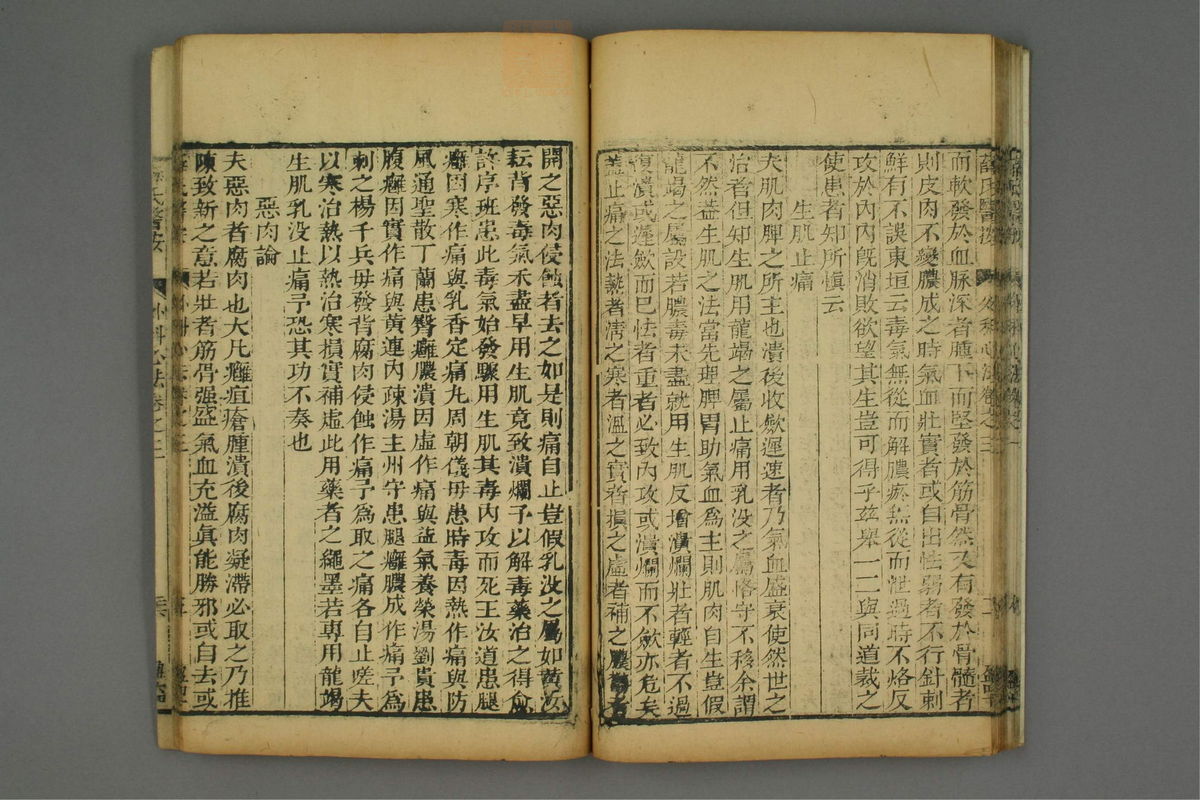 而軟發於血脉深者腫下而堅發於筋骨然又有發於骨髓者
則皮肉不變膿成之時氣血壯實者或自出怯弱者不行針刺
鮮有不誤東垣云毒氣無從而解膿瘀無從而泄過時不烙反
攻於內內旣消敗欲望其生豈可得乎玆舉一二與同道裁之
使患者知所愼云
生肌止痛
夫肌肉脾之所主也潰後收歛遲速者乃氣血盛衰使然世之
治者但知生肌用龍竭之屬止痛用乳没之屬恪守不移余謂
不然葢生肌之法當先理脾胃助氣血爲主則肌肉自生豈假
龍竭之屬設若膿毒未盡就用生肌反增潰爛壯者輕者不過
復潰或遲歛而已怯者重者必致內攻或潰爛而不歛亦危矣
葢止痛之法熱者淸之寒者溫之實者損之虛者補之膿鬱者
開之惡肉侵蝕者去之如是則痛自止豈假乳没之屬如黃汝
耘背發毒氣未盡早用生肌竟致潰爛予以解毒藥治之得愈
許序班患此毒氣始發驟用生肌其毒內攻而死王汝道患腿
癰因寒作痛與乳香定痛丸周朝儀毋患時毒因熱作痛與防
風通聖散丁蘭患臀癰膿潰因虛作痛與益氣養榮湯劉貢患
腹癰因實作痛與黃連內疎湯主州守患腿癰膿成作痛予爲
刺之楊千兵毋發背腐肉侵蝕作痛予爲取之痛各自止嗟夫
以寒治熱以熱治寒損實補虛此用藥者之繩墨若専用龍竭
生肌乳没止痛予恐其功不奏也
惡肉論
夫惡肉者腐肉也大凡癰疽瘡腫潰後腐肉凝滯必取之乃推
陳致新之意若壯者筋骨强盛氣血充溢眞能勝邪或自去或